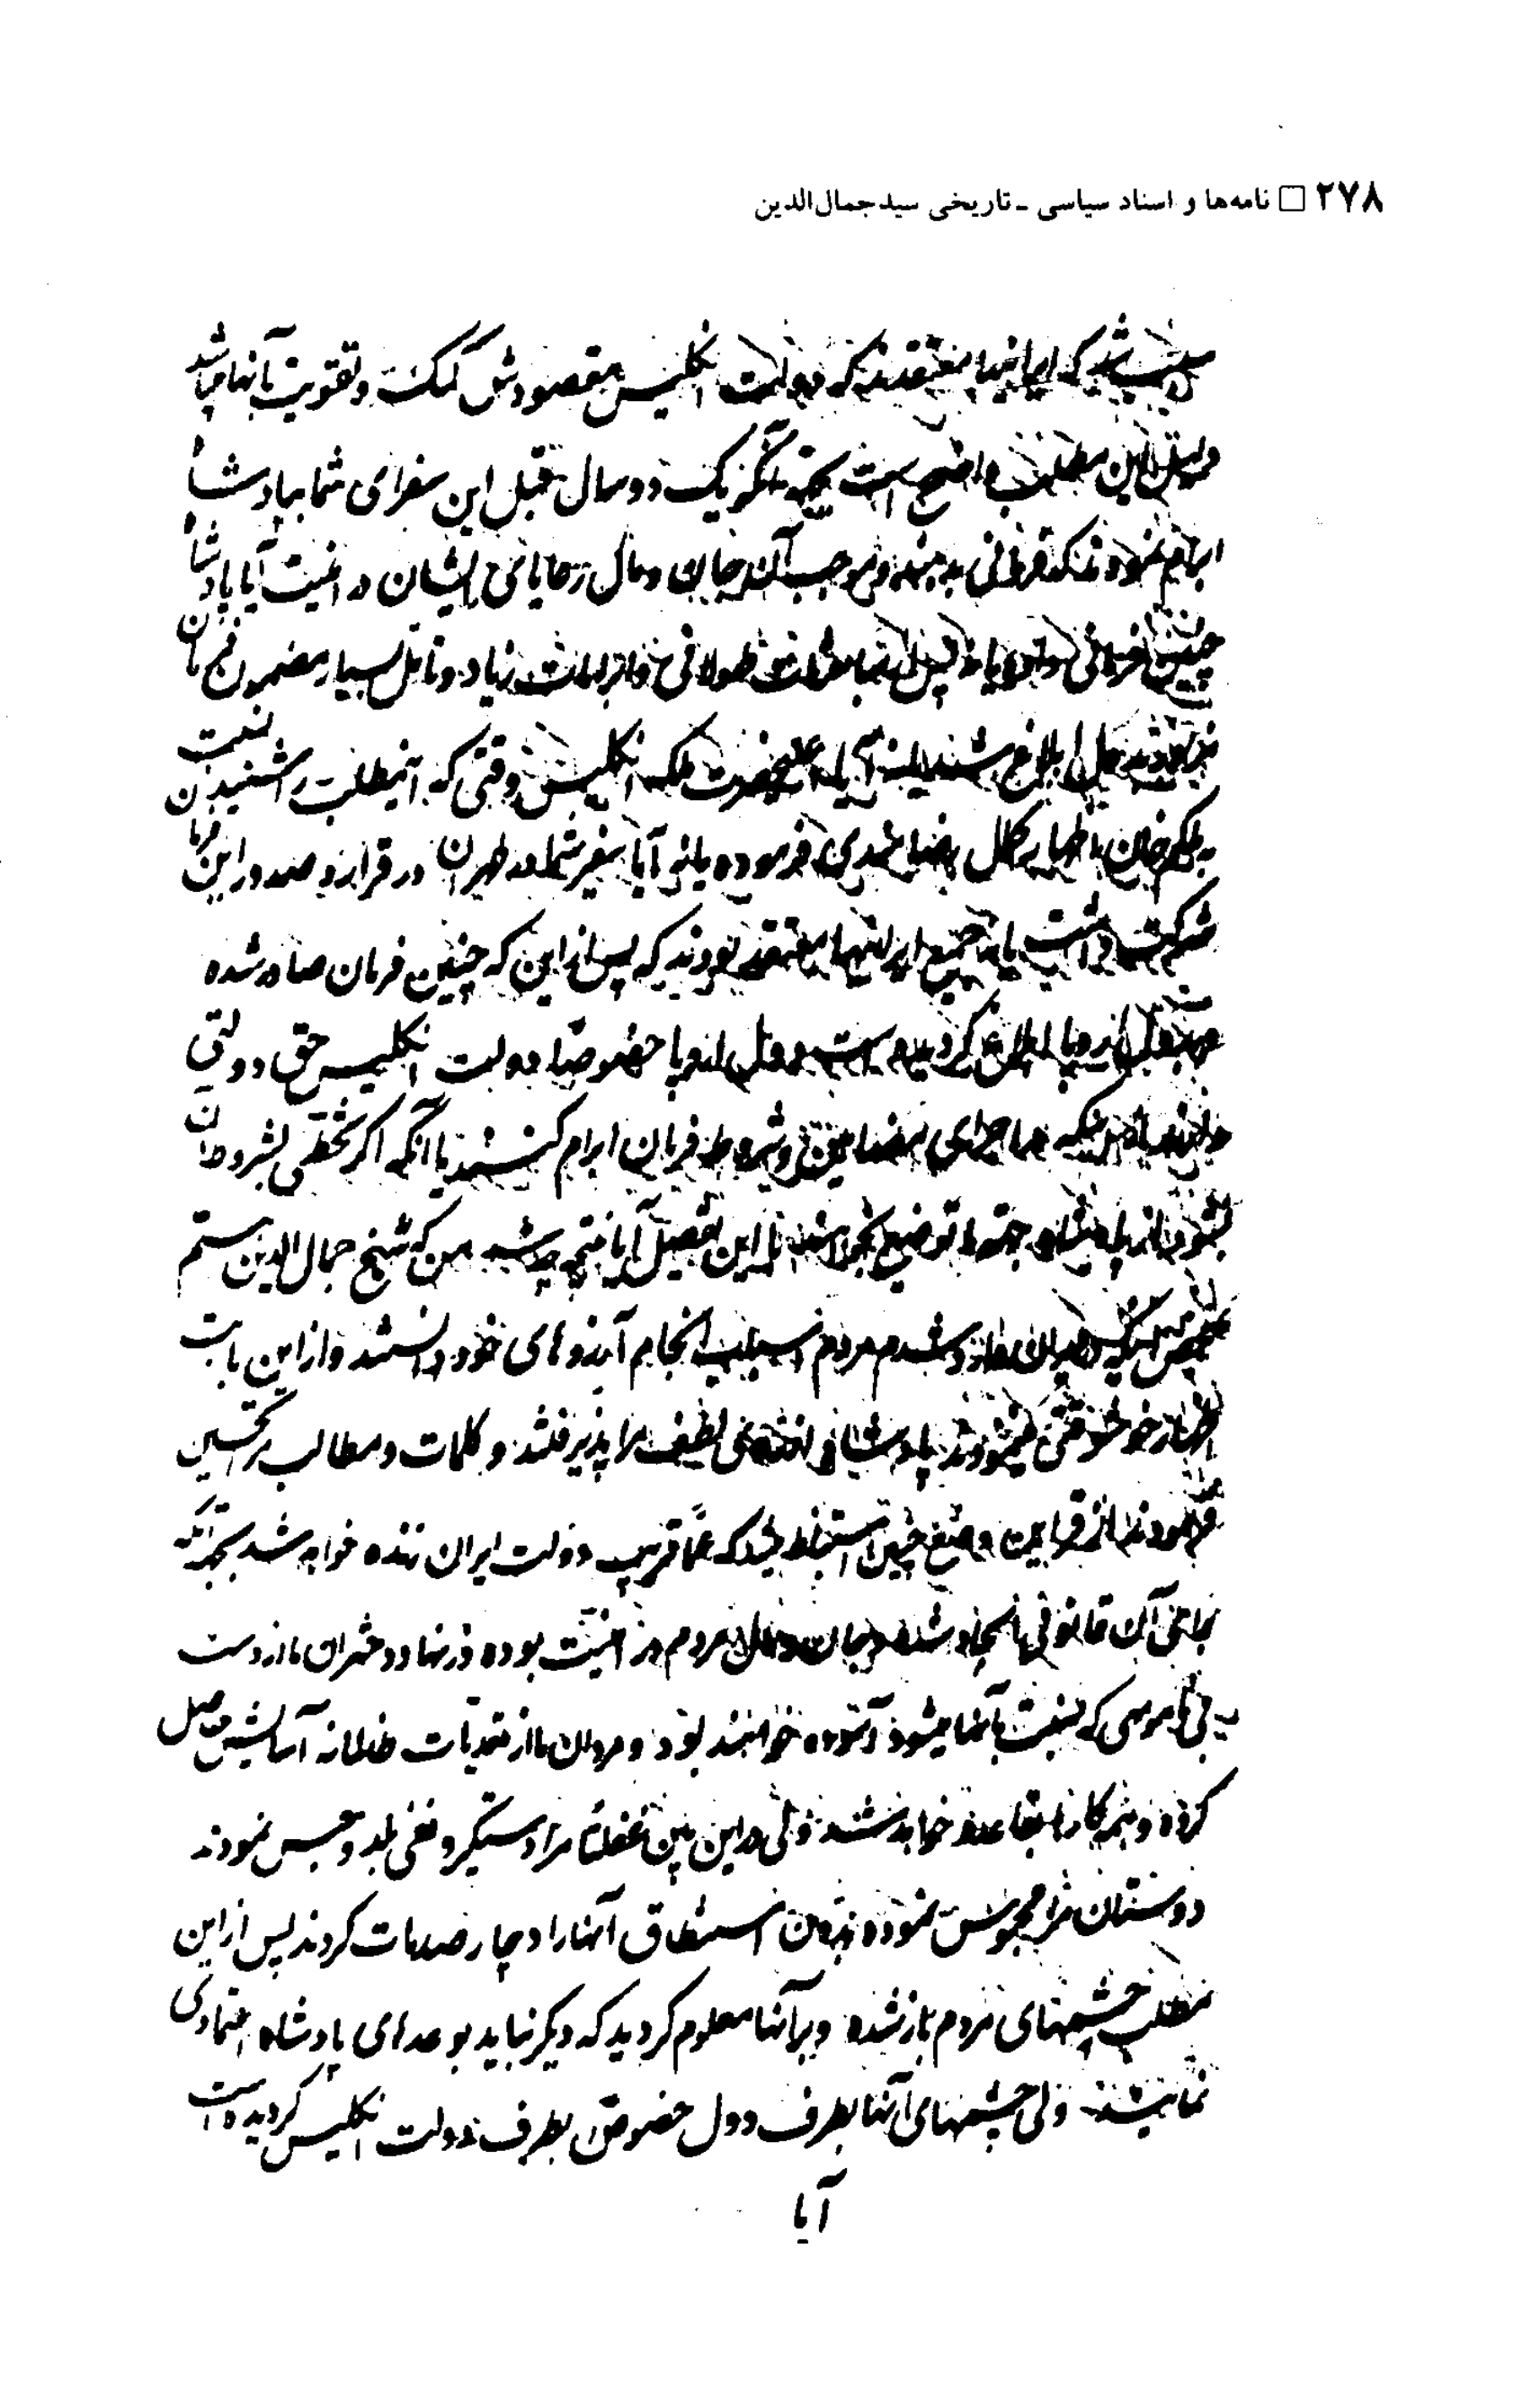 ۲۷۸ □ نامه‌ها و اسناد سیاسی ـ تاریخی سیدجمال‌الدین
که ایرانیها معتقدند که دولت انگلیس مقصودش کمک و تقویت بآنها میباشد
این مطلب واضح است بجهة آنکه یک دو سال قبل این سفرای شما بپادشاه
ابرام نمودند که فرمانی بدهند و بموجب آن جان و مال رعایای ایشان در امنیت آیا پادشاه
چنین فرمانی پس از طولانی و زیاد و تأمل بسیار مضمون فرمان
آیا اعلیحضرت ملکه انگلیس وقتی که اینمطلب را شنیدند نسبت
بملکم خان اظهار کمال رضامندی فرموده یا نه آیا سفیر شما در طهران در قرار و صدور این فرمان
شرکت داشت یا نه جمیع ایرانیها معتقد بودند که پس از این که چنین فرمان صادر شده
و بدول اروپا اعلان کردیده است دول اروپا خصوصاً دولت انگلیس حق دولتی
دارند اینکه در اجرای مضامین و شروط فرمان ابرام کنند یا آنکه اگر نقضی بشروط آن
بشود از پادشاه جهة یا توضیح بخواهند با این تفصیل آیا نتیجه چه شد من که شیخ جمال الدین هستم
بمحض اینکه بایران وارد شدم مردم اسباب انجام آرزوهای خود دانستند و از این بابت
اظهار خوشوقتی مینمودند پادشاه مرا پذیرفتند و کلمات و مطالب مرا تحسین
فرمودند از قراین وضع چنین استنباط شد که عماقریب دولت ایران زنده خواهد شد بجهة آنکه
بجای آن قانونی ایجاد شده و جان و مال مردم در امنیت بوده زنها و دختران ما از دست
بی ناموسی که نسبت بآنها میشود آسوده خواهند بود و مردان ما از تعدیات ظالمانه آسایش حاصل
کرده و همه کارها بقاعده خواهد شد ولی در این بین غفلتاً مرا دستگیر و نفی بلد و حبس نمودند
دوستان مرا محبوس نموده بدون استنطاق آنها را دچار صدمات کردند پس از این
مطلب چشمهای مردم باز شده و بر آنها معلوم کردید که دیگر نباید بوعدهای پادشاه اعتمادی
نمایند ولی چشمهای آنها بطرف دول خصوصاً بطرف دولت انگلیس کردیده است
آیا